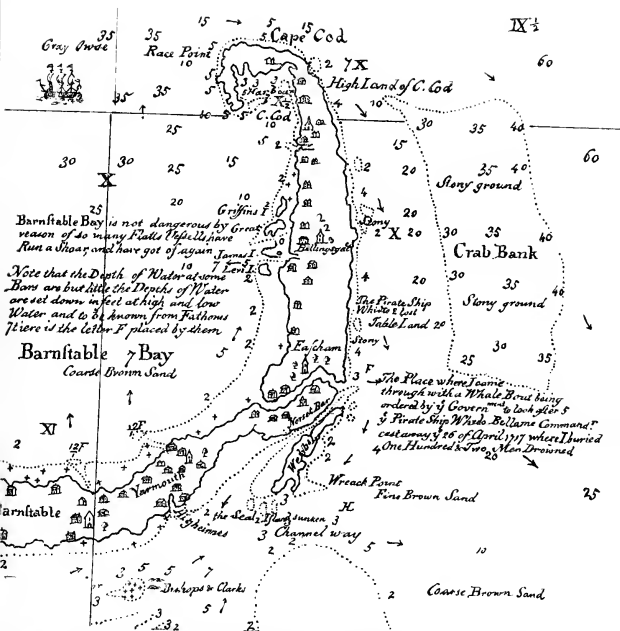 IX ½
Cape Cod
Gray Owse
Race Point
7 X
High Land of C. Cod
60
Harbour
C. Cod
X
Stony ground
60
Griffins I
Great I
James I
Levi I
Billingsgate
Stony
X
Crab Bank
Barnstable Bay is not dangerous by
reason of so many Flatts Vessells have
Run a Shoar and have got of again
Note that the Depth of Water at some
Bars are but little the Depths of Water
are set down in feet at high and low
Water and to be known from Fathoms
There is the letter F placed by them
The Pirate Ship
Whido lost
Table Land 20
Stony ground
Stony
Barnstable 7 Bay
Coarse Brown Sand
Eascham
The Place where I came
through with a Whale Boat being
ordered by ye Governmt to look after
ye Pirate Ship Whido Bellame Commandr
castaway ye 26 of April 1717 where I buried
One Hundred & Two Men Drowned
XI
12F
12F
Yarmouth
Barnstable
Wreack Point
Fine Brown Sand
25
the Seal Island sunken
Channel way
H
Bishops & Clarks
Coarse Brown Sand